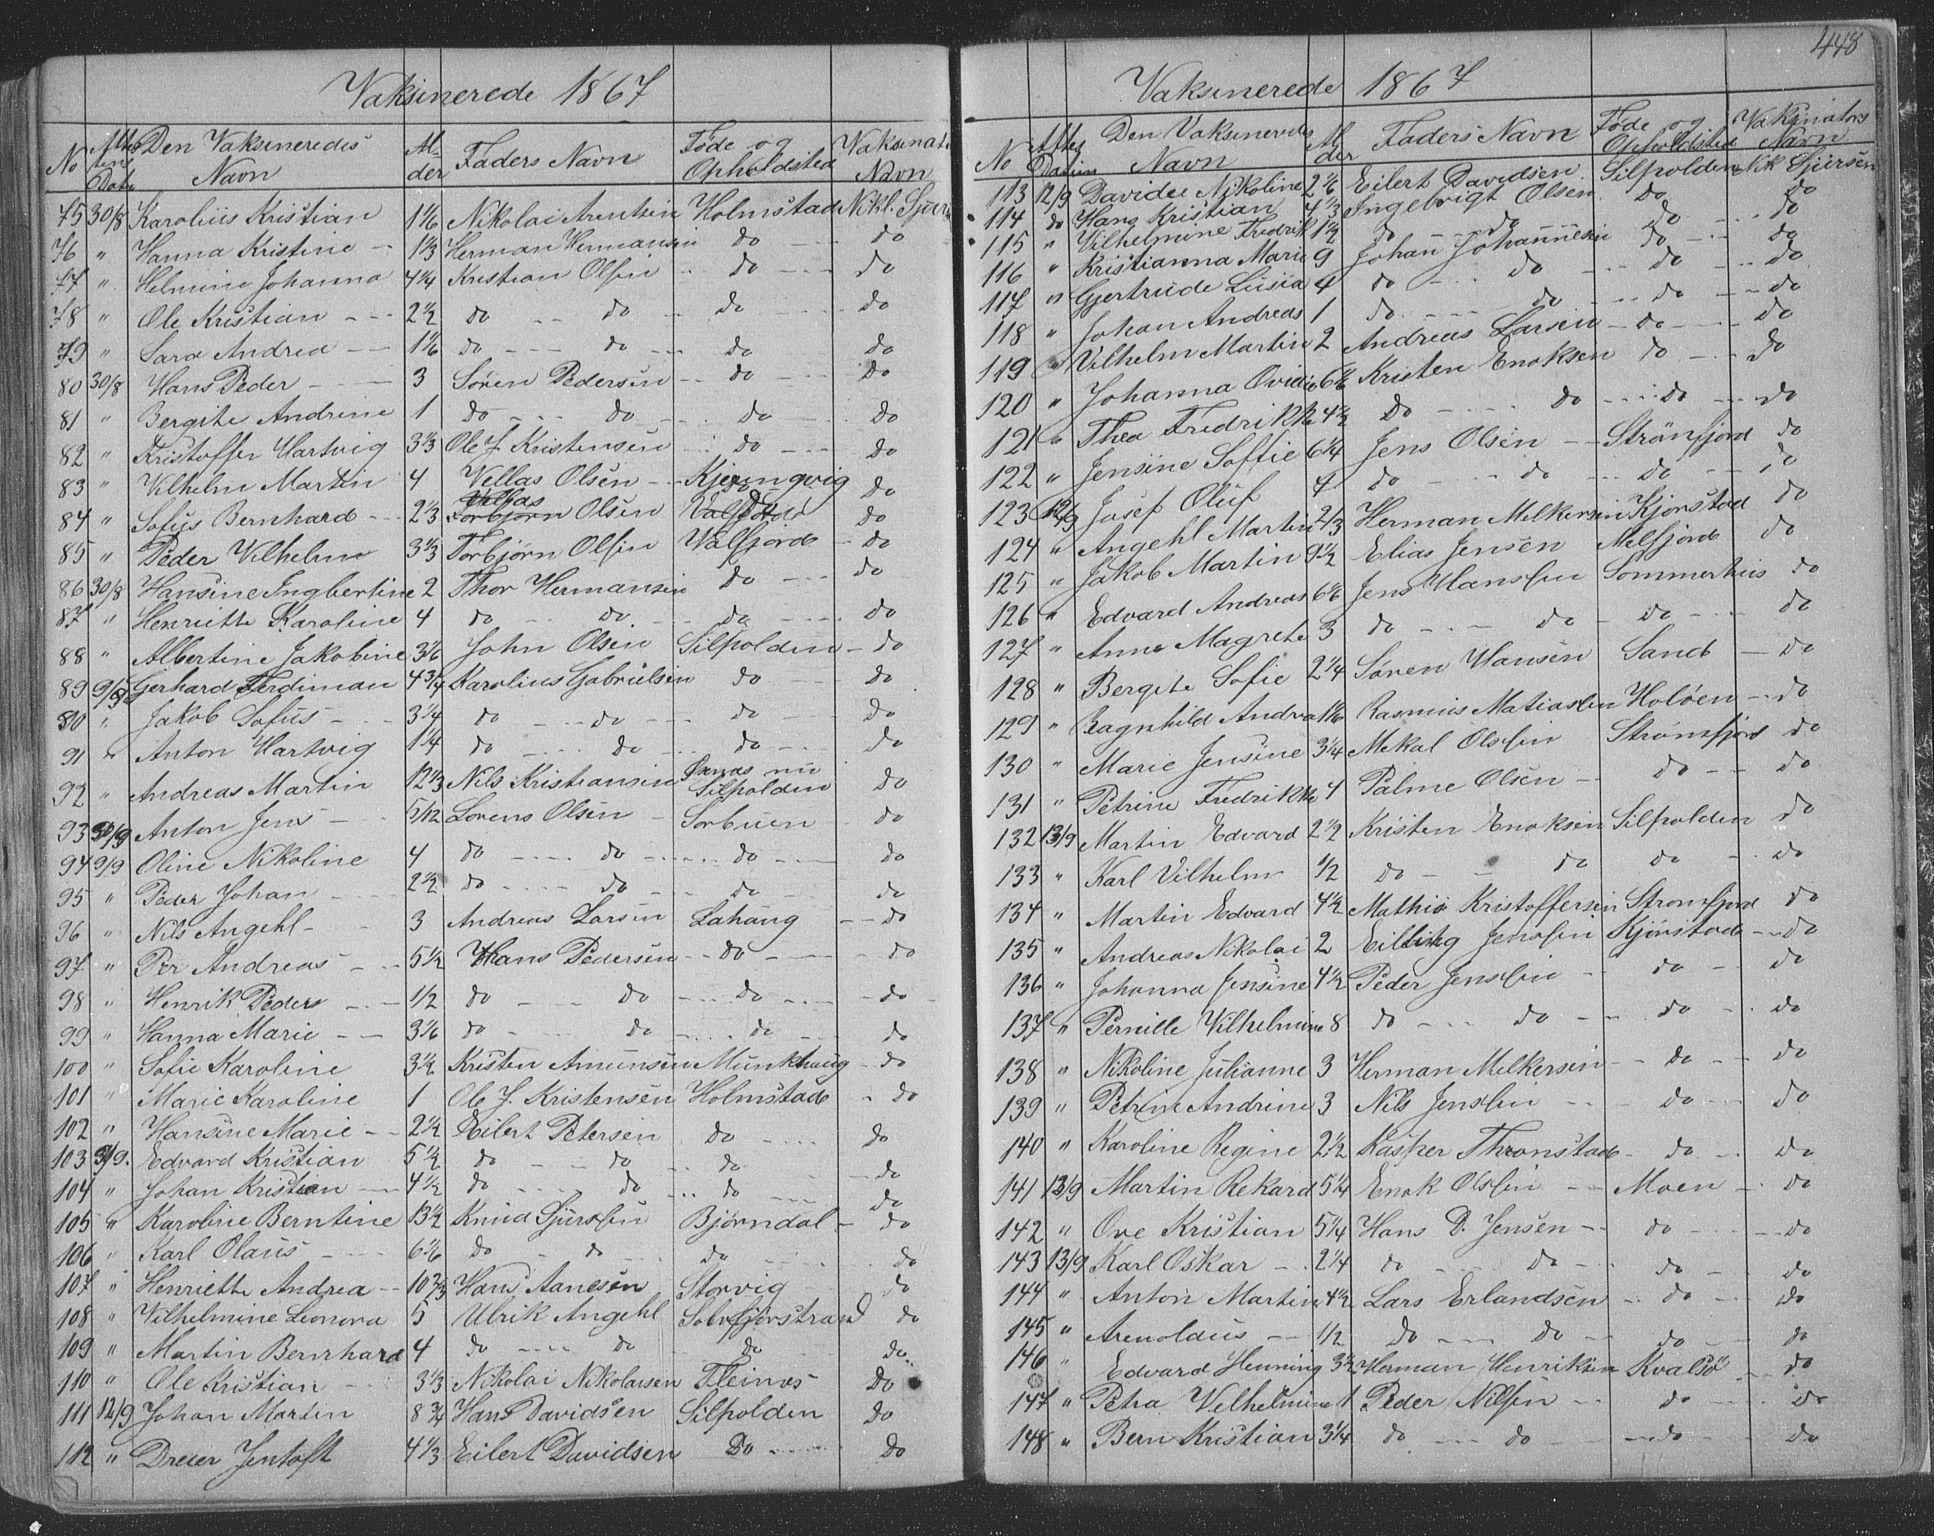 Vaksinerede 1867
No Attestens Date Den Vaksineredes Navn Alder Faders Navn Føde og Opholdsted Vaksinat. Navn
75 30/8 Karoliüs Kristian 1 1/6 Nikolai Arentsen Holmstad Nikl. Sjur
76 " Hanna Kristine - 1 1/3 Herman Hermansen do - - do
77 " Helmine Johanna 4 1/4 Kristian Olsen - do - - do
78 " Ole Kristian - - 2 1/2 do - - do - do - - do
79 " Sara Andrea - 1 1/6 do - - do - - do do
80 30/8 Hans Peder - - 3 Sören Pedersen - - do - - do
81 " Bergite Andrine 1 do - - do - do - do
82 " Kristoffer Hartvig 3 1/3 Ole J Kristensen - do - - do
83 " Vilhelm Martin 4 Vellas Olsen - - Kjerringvig do
84 " Sofus Bernhard - - 2 1/3 Vellas Olsen do do
85 " Peder Vilhelm 3 1/3 Torbjörn Olsen Valfjord - do
86 30/8 Hansine Ingbertine 2 Thor Hermansen do - - do
87 " Henriette Karoline 4 do - - do - do - - do
88 " Albertine Jakobine 3 1/6 John Olsen Silpolden - do
89 9/9 Gerhard Ferdiman 4 3/4 Karolius Gabrielsen do - do
90 " Jakob Sofus - - 3 1/4 do - - do - - do - - do
91 " Anton Hartvig 1 1/4 do - - do - do - - do
92 " Andreas Martin 12 1/3 Nils Kristiansen nu Silpolden do
93 9/9 Anton Jens - - 5/12 Lorens Olsen - Sorbuen - - do
94 9/9 Oline Nikoline 4 do - - do - - do - - do
95 " Peder Johan - - 2 1/2 do - - do - - do - do
96 " Nils Angehl - 3 Andreas Larsen Lahaug - - do
97 " Per Andreas - - 5 1/2 Hans Pedersen - - do - - do
98 " Henrik Peder - - 1/2 do - - do - - do - - do
99 " Hanna Marie - - 3 1/6 do - - do - - do - do
100 " Sofie Karoline 3 1/2 Kristen Amunsen Munkhaug - do
101 " Marie Karoline 1 Ole J Kristensen Holmstad - do
102 " Hansine Marie - - 2 1/2 Eilert Petersen do - - do
103 9/9. Edvard Kristian 5 1/2 do - - do - - do
104 " Johan Kristian - - 4 1/2 do - - do - - do - - do
105 " Karoline Berntine 13 1/2 Knud Sjursen Bjørndal - do
106 " Karl Olaus - - 6 1/6 do - do - do - do
107 " Henriette Andrea - - 10 2/3 Hans Aanesen Storvig - do
108 " Vilhelmine Leonora 5 Ulrik Angehl Solvfjørstrand do
109 " Martin Bernhard 4 do - - do do do
110 " Ole Kristian - 3 1/3 Nikolai Nikolaisen Fleines - do
111 12/9 Johan Martin 8 3/4 Hans Davidsen Silpolden do
112 " Dreier Jentoft 4 1/3 Eilert Davidsen Do - - do
448
Vaksinerede 1867
No Attes Datum Den Vaksineredes Navn Alder Faders Navn Føde og Opholdsted Vaksinators Navn
113 12/9 Davidee Nikoline 2 1/6 Eilert Davidsen Silpolden Nik Sjursen
114 do Hans Kristian 4 1/3 Ingebrigt Olsen do do
115 " Vilhelmine Fredrik 1 1/2 do - - do - do - - do
116 " Kristianna Marie 9 Johan Johannesen do - do
117 " Gjertrude Lusia 4 do - do - - do - - do
118 " Johan Andreas 1 do - - do - - do - - do
119 " Vilhelm Martin 2 Andreas Larsen - do - - do
120 " Johanna 6 1/6 Kristen Enoksen do - - do
121 " Thea Fredrikke 4 1/2 do - - do - - do - - do
122 " Jensine Sofie 6 1/4 Jens Olsen - - Strönfjord do
123 12/9 Josef Oluf 4 do - - do - do - - do
124 " Angehl Martin 2/3 Herman Melkersen Kjörstad do
125 " Jakob Martin 9 1/2 Elias Jensen Melfjord do
126 " Edvard Andreas 6 1/6 Jens Hansen Sommerhus do
127 " Anne Magrete 3 do - - do - do - - do
128 " Bergite Sofie 2 1/4 Sören Hansen Sand - do
129 " Ragnhild Andrea 1/6 Rasmus Matiassen Holöen - - do
130 " Marie Jensine 3 1/4 Mekal Olsen Strømfjord do
131 " Petrine Fredrikke 4 Palme Olsen - - do - - do
132 13/9 Martin Edvard 2 1/2 Kristen Enoksen Silpolden do
133 " Karl Vilhelm 1/2 do - - do do - do
134 " Martin Edvard 4 1/2 Mathias Kristoffersen Stromfjord do
135 " Andreas Nikolai 2 Eilling Jensen Kjörstad - - do
136 " Johanna Jensine 4 1/2 Peder Jensen - - do - do
137 " Pernille Vilhelmine 8 do - - do - - do - do
138 " Nikoline Julianne 3 Herman Melkersen - - do - - do
139 " Petrine Andrine 3 Nils Jensen - - do - do
140 " Karoline Regine 2 1/2 Kasper Thronstad - do - do
141 13/9 Martin Rekard 5 1/4 Enok Olsen - - Moen - do
142 " Ove Kristian 5 1/4 Hans D. Jensen - - do - - do
143 13/9 Karl Oskar - - 2 1/4 do - - do - do - do
144 " Anton Martin 4 1/2 Lars Erlandsen - - do - - do
145 " Arnoldus - - 1/2 do - - do - do - - do
146 " Edvard Henning 3 1/2 Herman Henriksen Kvalsö - do
147 " Petra Vilhelmine 1 Peder Nilsen - - do - - do
148 " Bern Kristian 3 1/4 do - - do - - do - - do